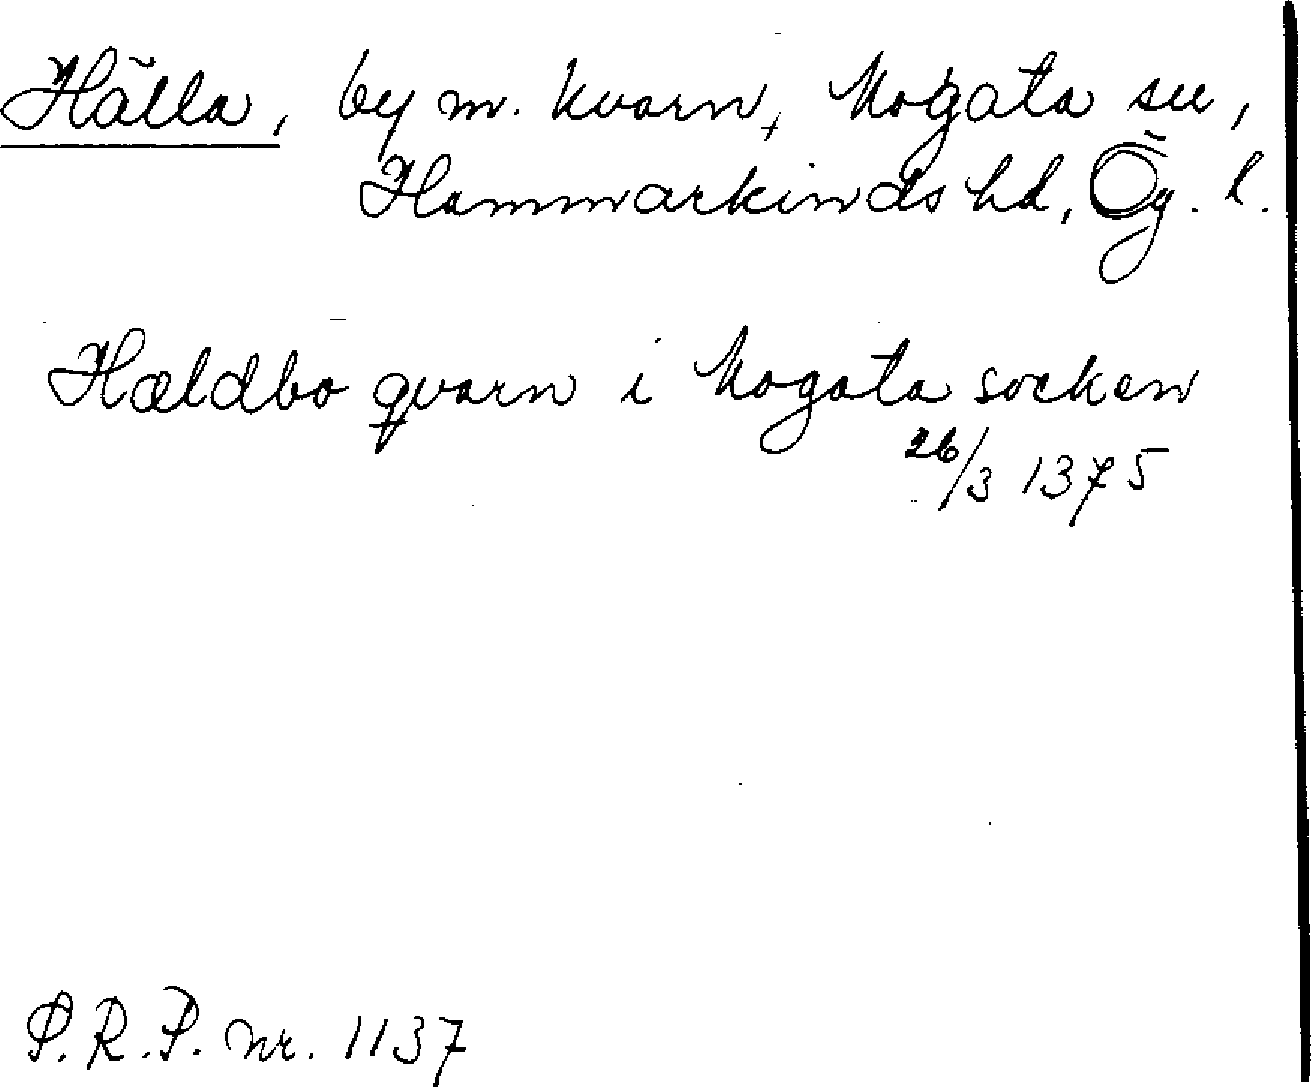 Hälla, by m. kvarn, Mogata sn,
Hammarkinds hd, Ög. l.
Hældbo qvarn i Mogata socken
26/3 1375
P.R.P. nr. 1137